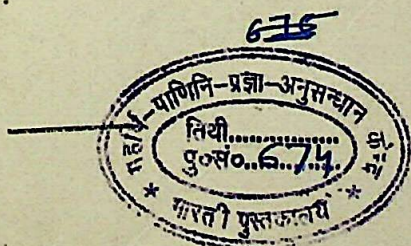 675
महर्षि-पाणिनि-प्रज्ञा-अनुसन्धान केन्द्र
तिथी..................
पु०सं०...674.........
* भारती पुस्तकालय *